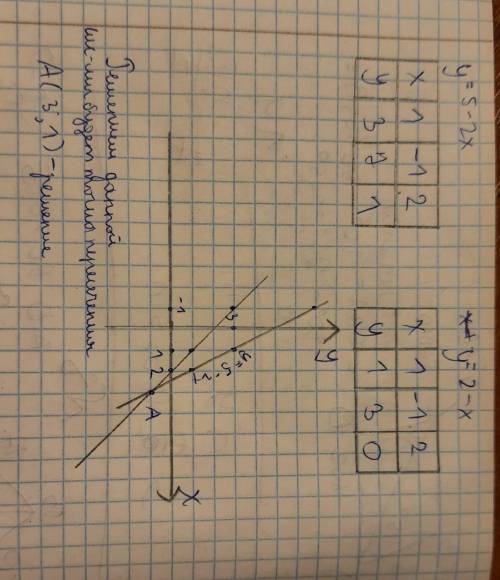 y = 5 - 2x
x 1 -1 2
y 3 7 1
y = 2 - x
x 1 -1 2
y 1 3 0
y
3
-1
1
2
A
x
Решением данной
сис-мы будет точка пересечения
A(3; 1) - решение